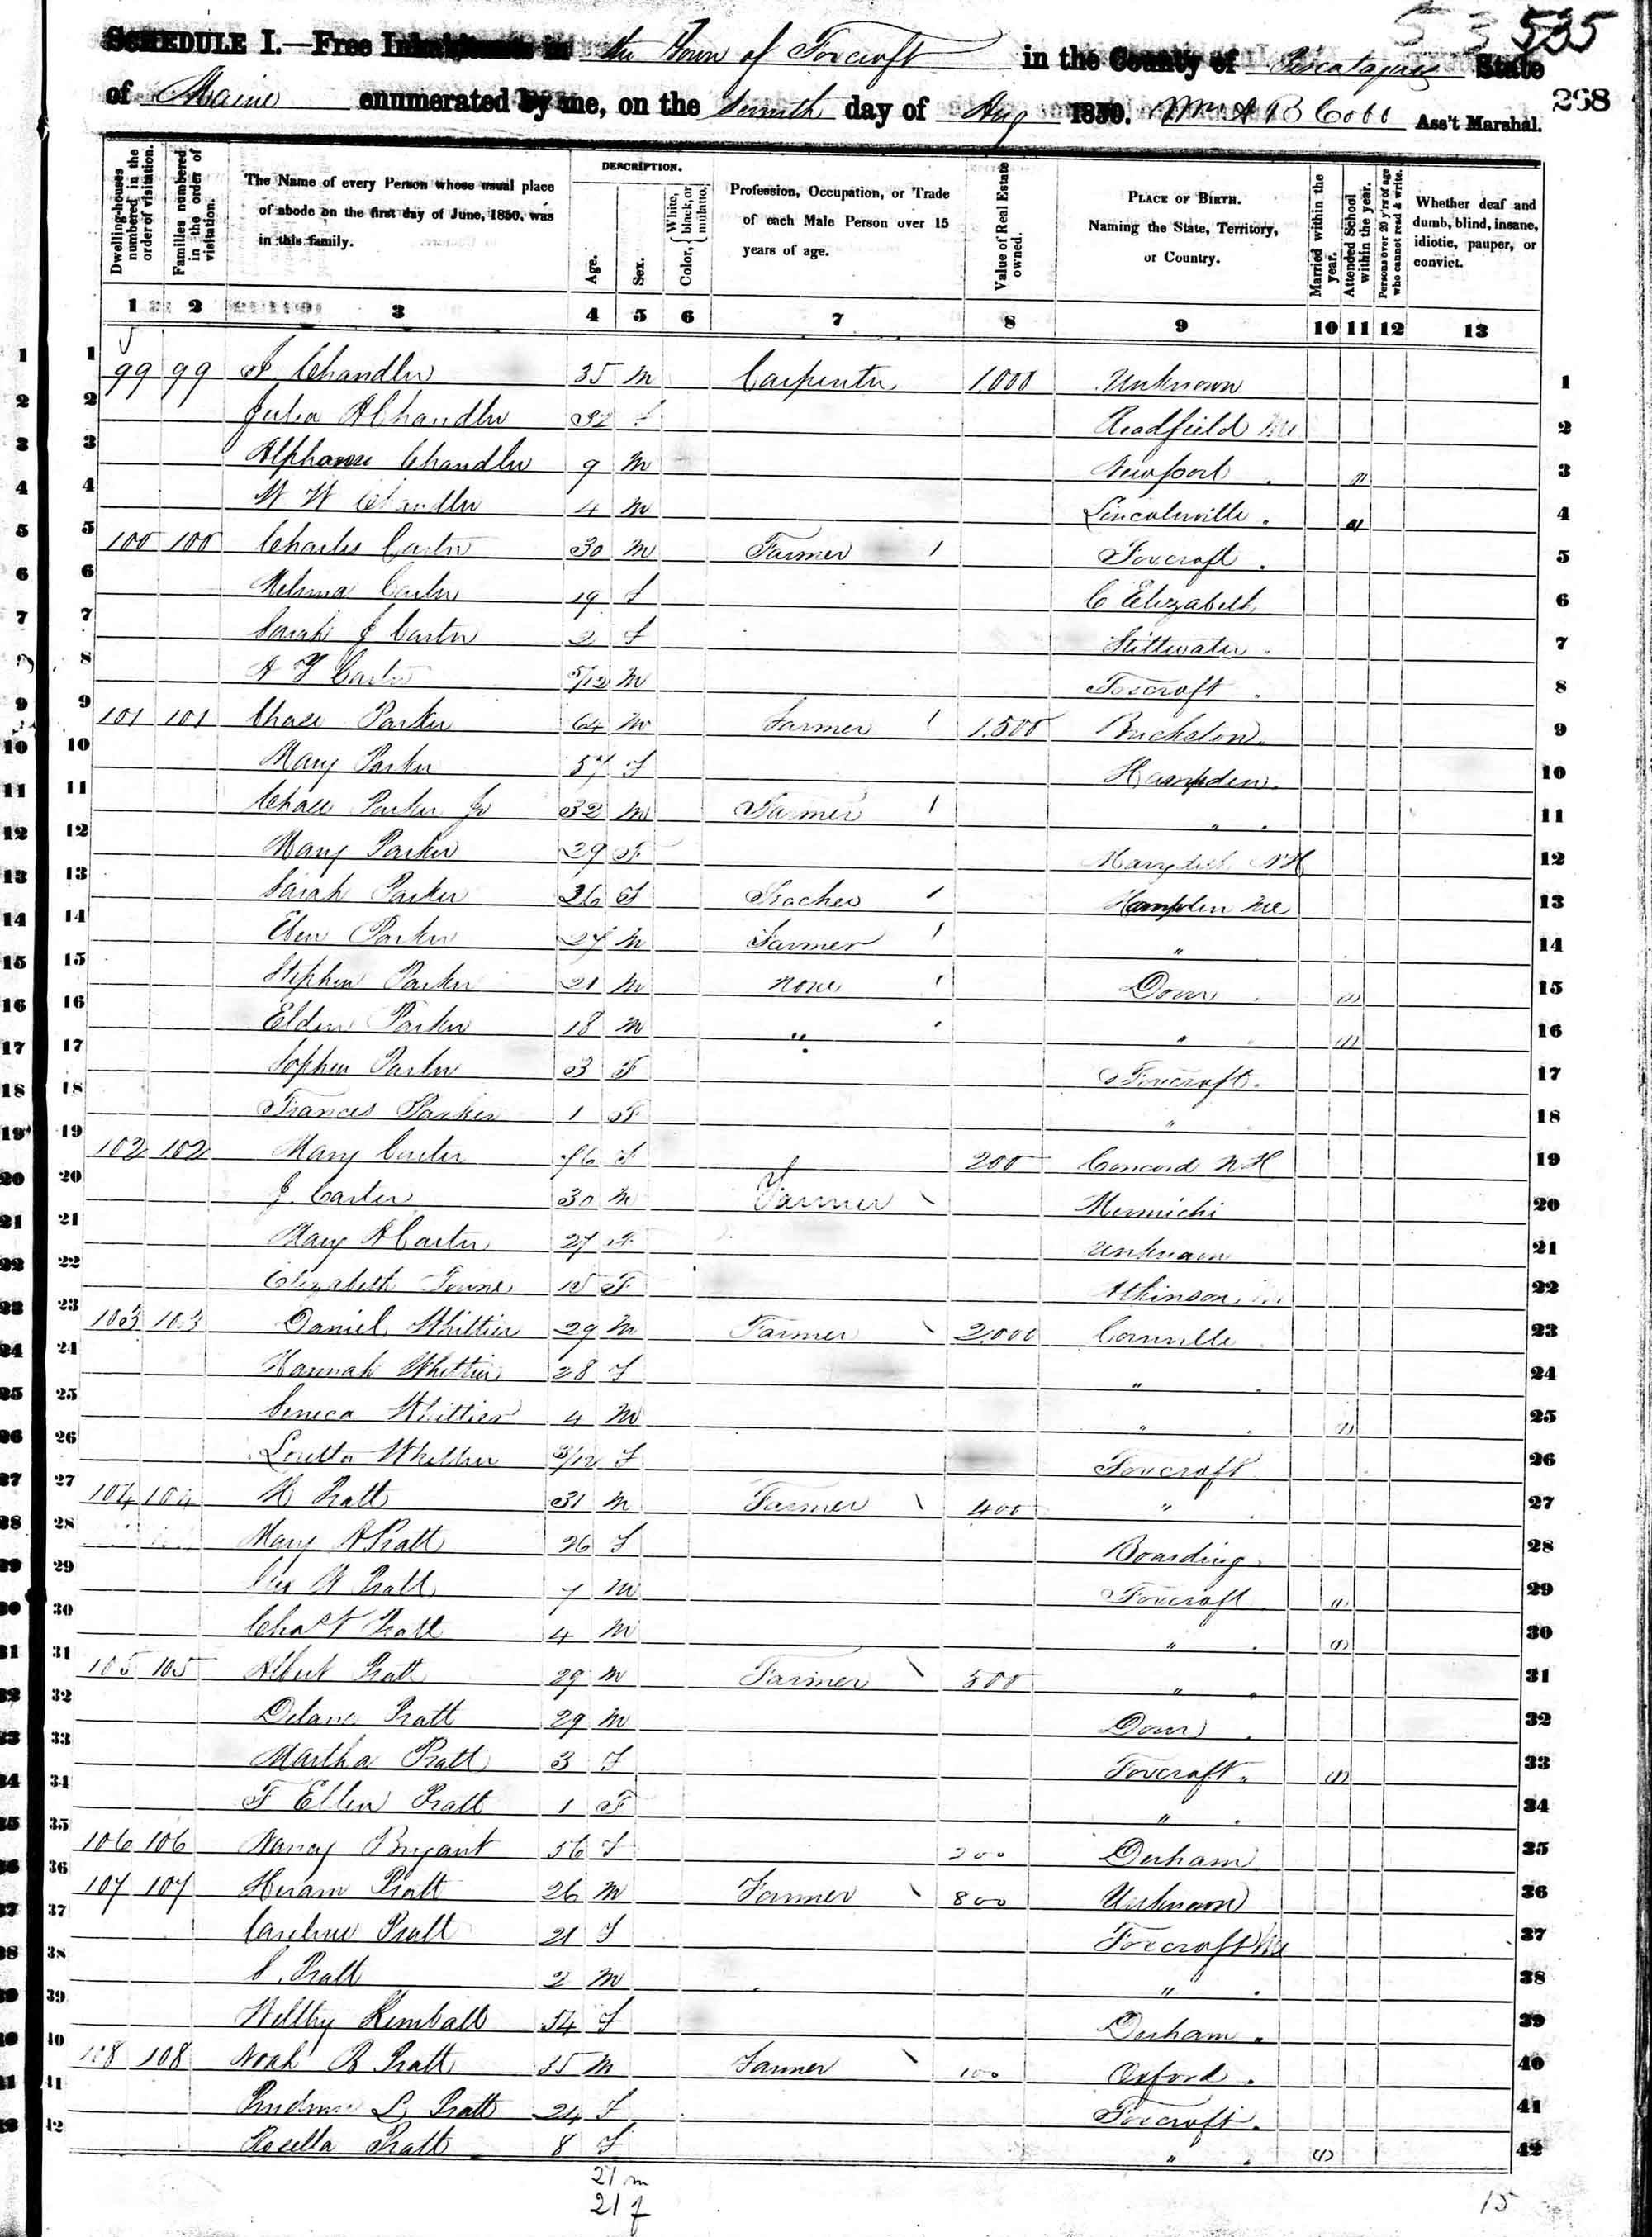 53 535
SCHEDULE I.—Free Inhabitants in the Town of Foxcroft in the County of Piscataquis State
of Maine enumerated by me, on the day of Aug 1850. Wm A B Cobb Ass't Marshal.
268
Dwelling-houses numbered in the order of visitation.
Families numbered in the order of visitation.
The Name of every Person whose usual place of abode on the first day of June, 1850, was in this family.
DESCRIPTION.
Age.
Sex.
Color, { White, black, or mulatto.
Profession, Occupation, or Trade of each Male Person over 15 years of age.
Value of Real Estate owned.
PLACE OF BIRTH. Naming the State, Territory, or Country.
Married within the year.
Attended School within the year.
Persons over 20 y'rs of age who cannot read & write.
Whether deaf and dumb, blind, insane, idiotic, pauper, or convict.
1 2 3 4 5 6 7 8 9 10 11 12 13
1 99 99 Chandler 35 M Carpenter 1,000 Unknown 1
2 Julia A Chandler 32 f Readfield Me 2
3 Alphonse Chandler 9 M Newport 3
4 W W Chandler 4 M Lincolnville 4
5 100 100 Charles Carter 30 M Farmer Foxcroft 5
6 Carter 19 f C Elizabeth 6
7 Sarah J Carter 2 F Stillwater 7
8 Carter 5/12 M Foxcroft 8
9 101 101 Chase Parker 64 M Farmer 1,500 9
10 Mary Parker 57 F Hampden 10
11 Chase Parker Jr 32 M Farmer " 11
12 Mary Parker 29 F NH 12
13 Sarah Parker 26 F Teacher Hampden Me 13
14 Eben Parker 27 M Farmer " 14
15 Stephen Parker 21 M None Dover 15
16 Elden Parker 18 M " " 16
17 Parker 3 F Foxcroft 17
18 Frances Parker 1 F " 18
19 102 102 Mary Carter 76 F 200 Concord NH 19
20 J. Carter 30 M Farmer 20
21 Mary A Carter 27 F Unknown 21
22 Elizabeth Towne 15 F Atkinson 22
23 103 103 Daniel Whittier 29 M Farmer 2,000 Cornville 23
24 Hannah Whittier 28 F " 24
25 Seneca Whittier 4 M " 25
26 Loretta Whittier 3/12 F Foxcroft 26
27 104 104 H Pratt 31 M Farmer 400 " 27
28 Mary A Pratt 26 F 28
29 Geo W Pratt 7 M Foxcroft 29
30 Chas Pratt 4 M " 30
31 105 105 Albert Pratt 29 M Farmer 500 " 31
32 Pratt 29 M Dover 32
33 Martha Pratt 3 F Foxcroft 33
34 F Ellen Pratt 1 F " 34
35 106 106 Nancy Bryant 56 F 200 Durham 35
36 107 107 Hiram Pratt 26 M Farmer 800 Unknown 36
37 Caroline Pratt 21 F Foxcroft Me 37
38 Pratt 2 M " 38
39 Kimball 54 F Durham 39
40 108 108 Noah B Pratt 35 M Farmer 100 Oxford 40
41 L Pratt 24 F Foxcroft 41
42 Rosella Pratt 8 F " 42
21 m
21 f
15